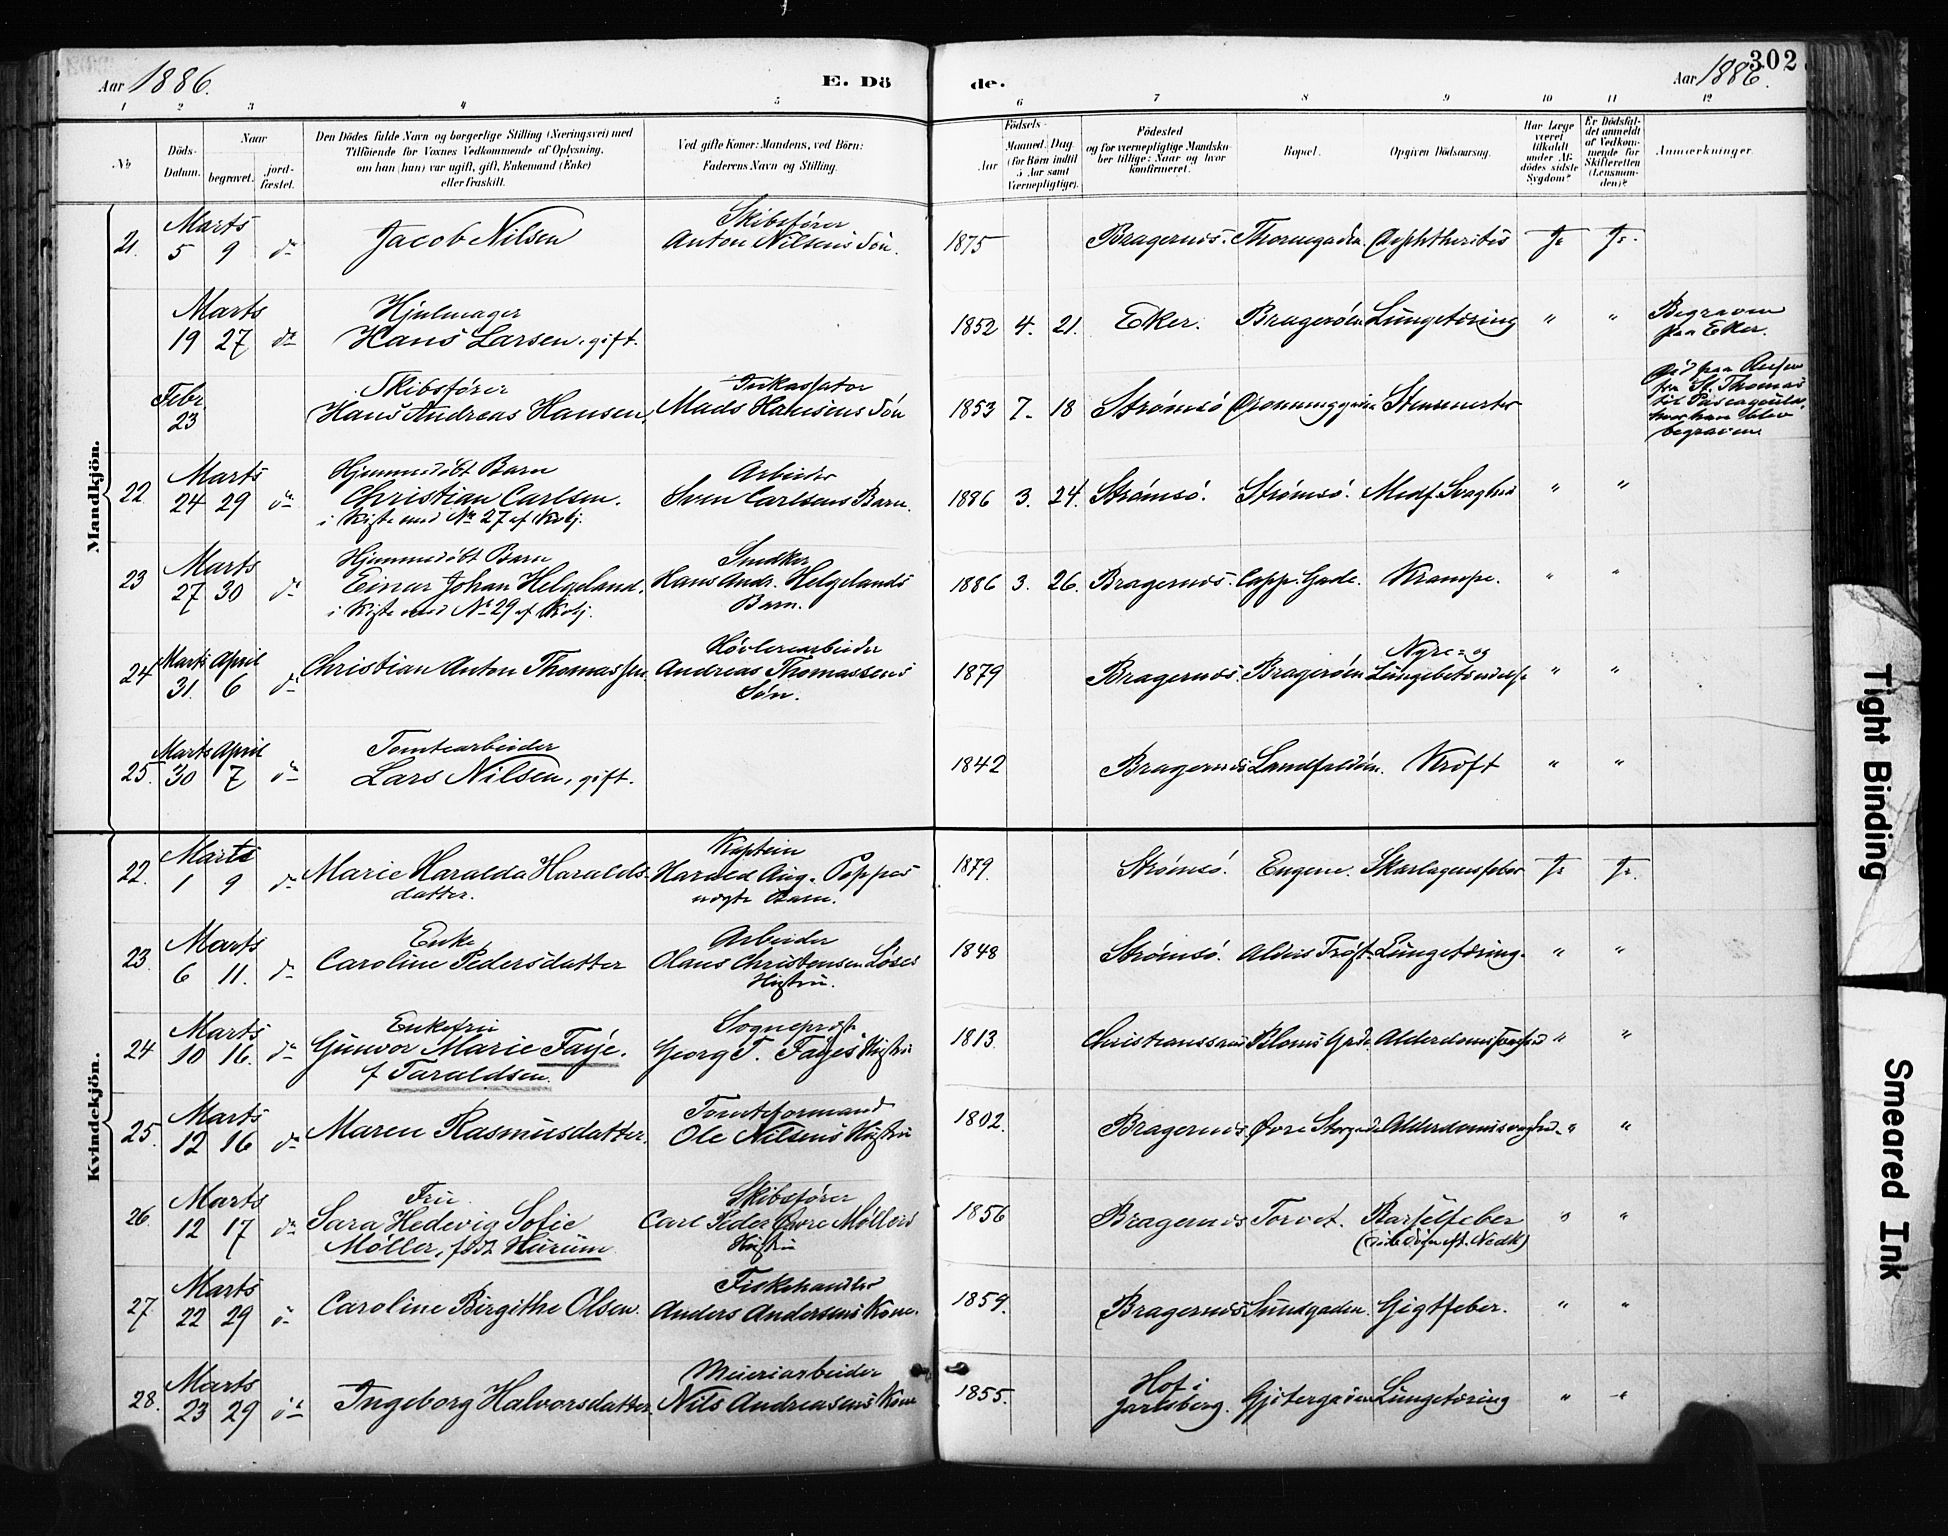 Aar 1886.
E. Dö
de.
Aar 1886.
302
1 2 3 4 5 6 7 8 9 10 11 12
No
Döds-
Datum.
Naar
begravet.
jord-
fæstet.
Den Dödes fulde Navn og borgerlige Stilling (Næringsvei) med
Tilföiende for Voxnes Vedkommende af Oplysning,
om han (hun) var ugift, gift, Enkemand (Enke)
eller fraskilt.
Ved gifte Koner: Mandens, ved Börn:
Faderens Navn og Stilling.
Födsels-
Aar
Maaned. Dag.
(for Börn indtil
5 Aar samt
Værnepligtige).
Födested
og for værnepligtige Mandska-
ber tillige: Naar og hvor
konfirmeret.
Bopæl.
Opgiven Dödsaarsag.
Har Læge
været
tilkaldt
under Af-
dødes sidste
Sygdom?
Er Dödsfal-
det anmeldt
af Vedkom-
mende for
Skifteretten
(Lensman-
den)?
Anmærkninger.
Mandkjön.
21. Marts 5 9 do Jacob Nilsen
Skibsfører
Anton Nilsens Søn.
1875 Bragernes. Thornegaden Diphtheritis Ja Ja.
Marts 19 27 do
Hjulmager
Hans Larsen, gift.
1852 4. 21. Eker. Bragerøen Lungetæring " "
Begraven
paa Eker.
Febr 23
Skibsfører
Hans Andreas Hansen,
Inkassator
Mads Hansens Søn
1853 7- 18 Strømsø
fra St. Thomas
til Pascagoula,
hvor han blev
begraven
22 Marts 24 29 do
Hjemmedøbt Barn
Christian Carlsen.
i Kiste med No 27 af Kvkj.
Arbeider
Sven Carlsens Barn.
1886 3. 24. Strømsø. Strømsø. Medf. Svaghed " "
23 Marts 27 30 do
Hjemmedøbt Barn
Einar Johan Helgeland.
i Kiste med No 29 af Kvkj.
Snedker
Hans Andr. Helgelands
Barn.
1886 3. 26. Bragernes. Capp. Gade. Krampe. " "
24 Marts 31. April 6 do
Christian Anton Thomassen
Høvleriarbeider
Andreas Thomassens
Søn.
1879 Bragernes. Bragerøen
Nyre- og
Lungebetændelse " "
25. Marts 30 April 7 do
Tomtearbeider
Lars Nilsen, gift.
1842 Bragernes Landfaldøen. Kræft " "
Kvindekjön.
22. Marts 1 9 do
Marie Haralda Haralds-
datter.
Kaptein
Harald Aug. Poppes
uægte Barn.
1879. Strømsø. Eugene. Skarlagensfeber Ja Ja.
23. Marts 6 11. do
Enke
Caroline Pedersdatter
Arbeider
Olaus Christensen Løses
Hustru.
1848 Strømsø. Alders Trøst Lungetæring. " "
24 Marts 10 16. do
Enkefru
Gunvor Marie Faye.
f Taraldsen.
Sogneprest
Georg T. Fayes Hustru
1813. Christianssand Gade Alderdomssvaghed " "
25. Marts 12 16 do
Maren Rasmusdatter.
Tomteformand
Ole Nilsens Hustru
1802. Bragernes. Øvre Storgade Alderdomssvaghed " "
26. Marts 12 17 do
Fru
Sara Hedevig Sofie
Møller, født Hurum
Skibsfører
Carl Peder Møllers
Hustru
1856 Bragernes Torvet. Barselfeber
" "
27. Marts 22 29 do
Caroline Birgithe Olsen.
Fiskehandler
Anders Andersens Kone.
1859. Bragernes Sundgaden. Gigtfeber. " "
28. Marts 23 29 do
Ingeborg Halvorsdatter.
Meieriarbeider
Nils Andreasens Kone
1855.
Hof i
Jarlsberg. Gjetergaden Lungetæring " "
Tight Binding
Smeared Ink